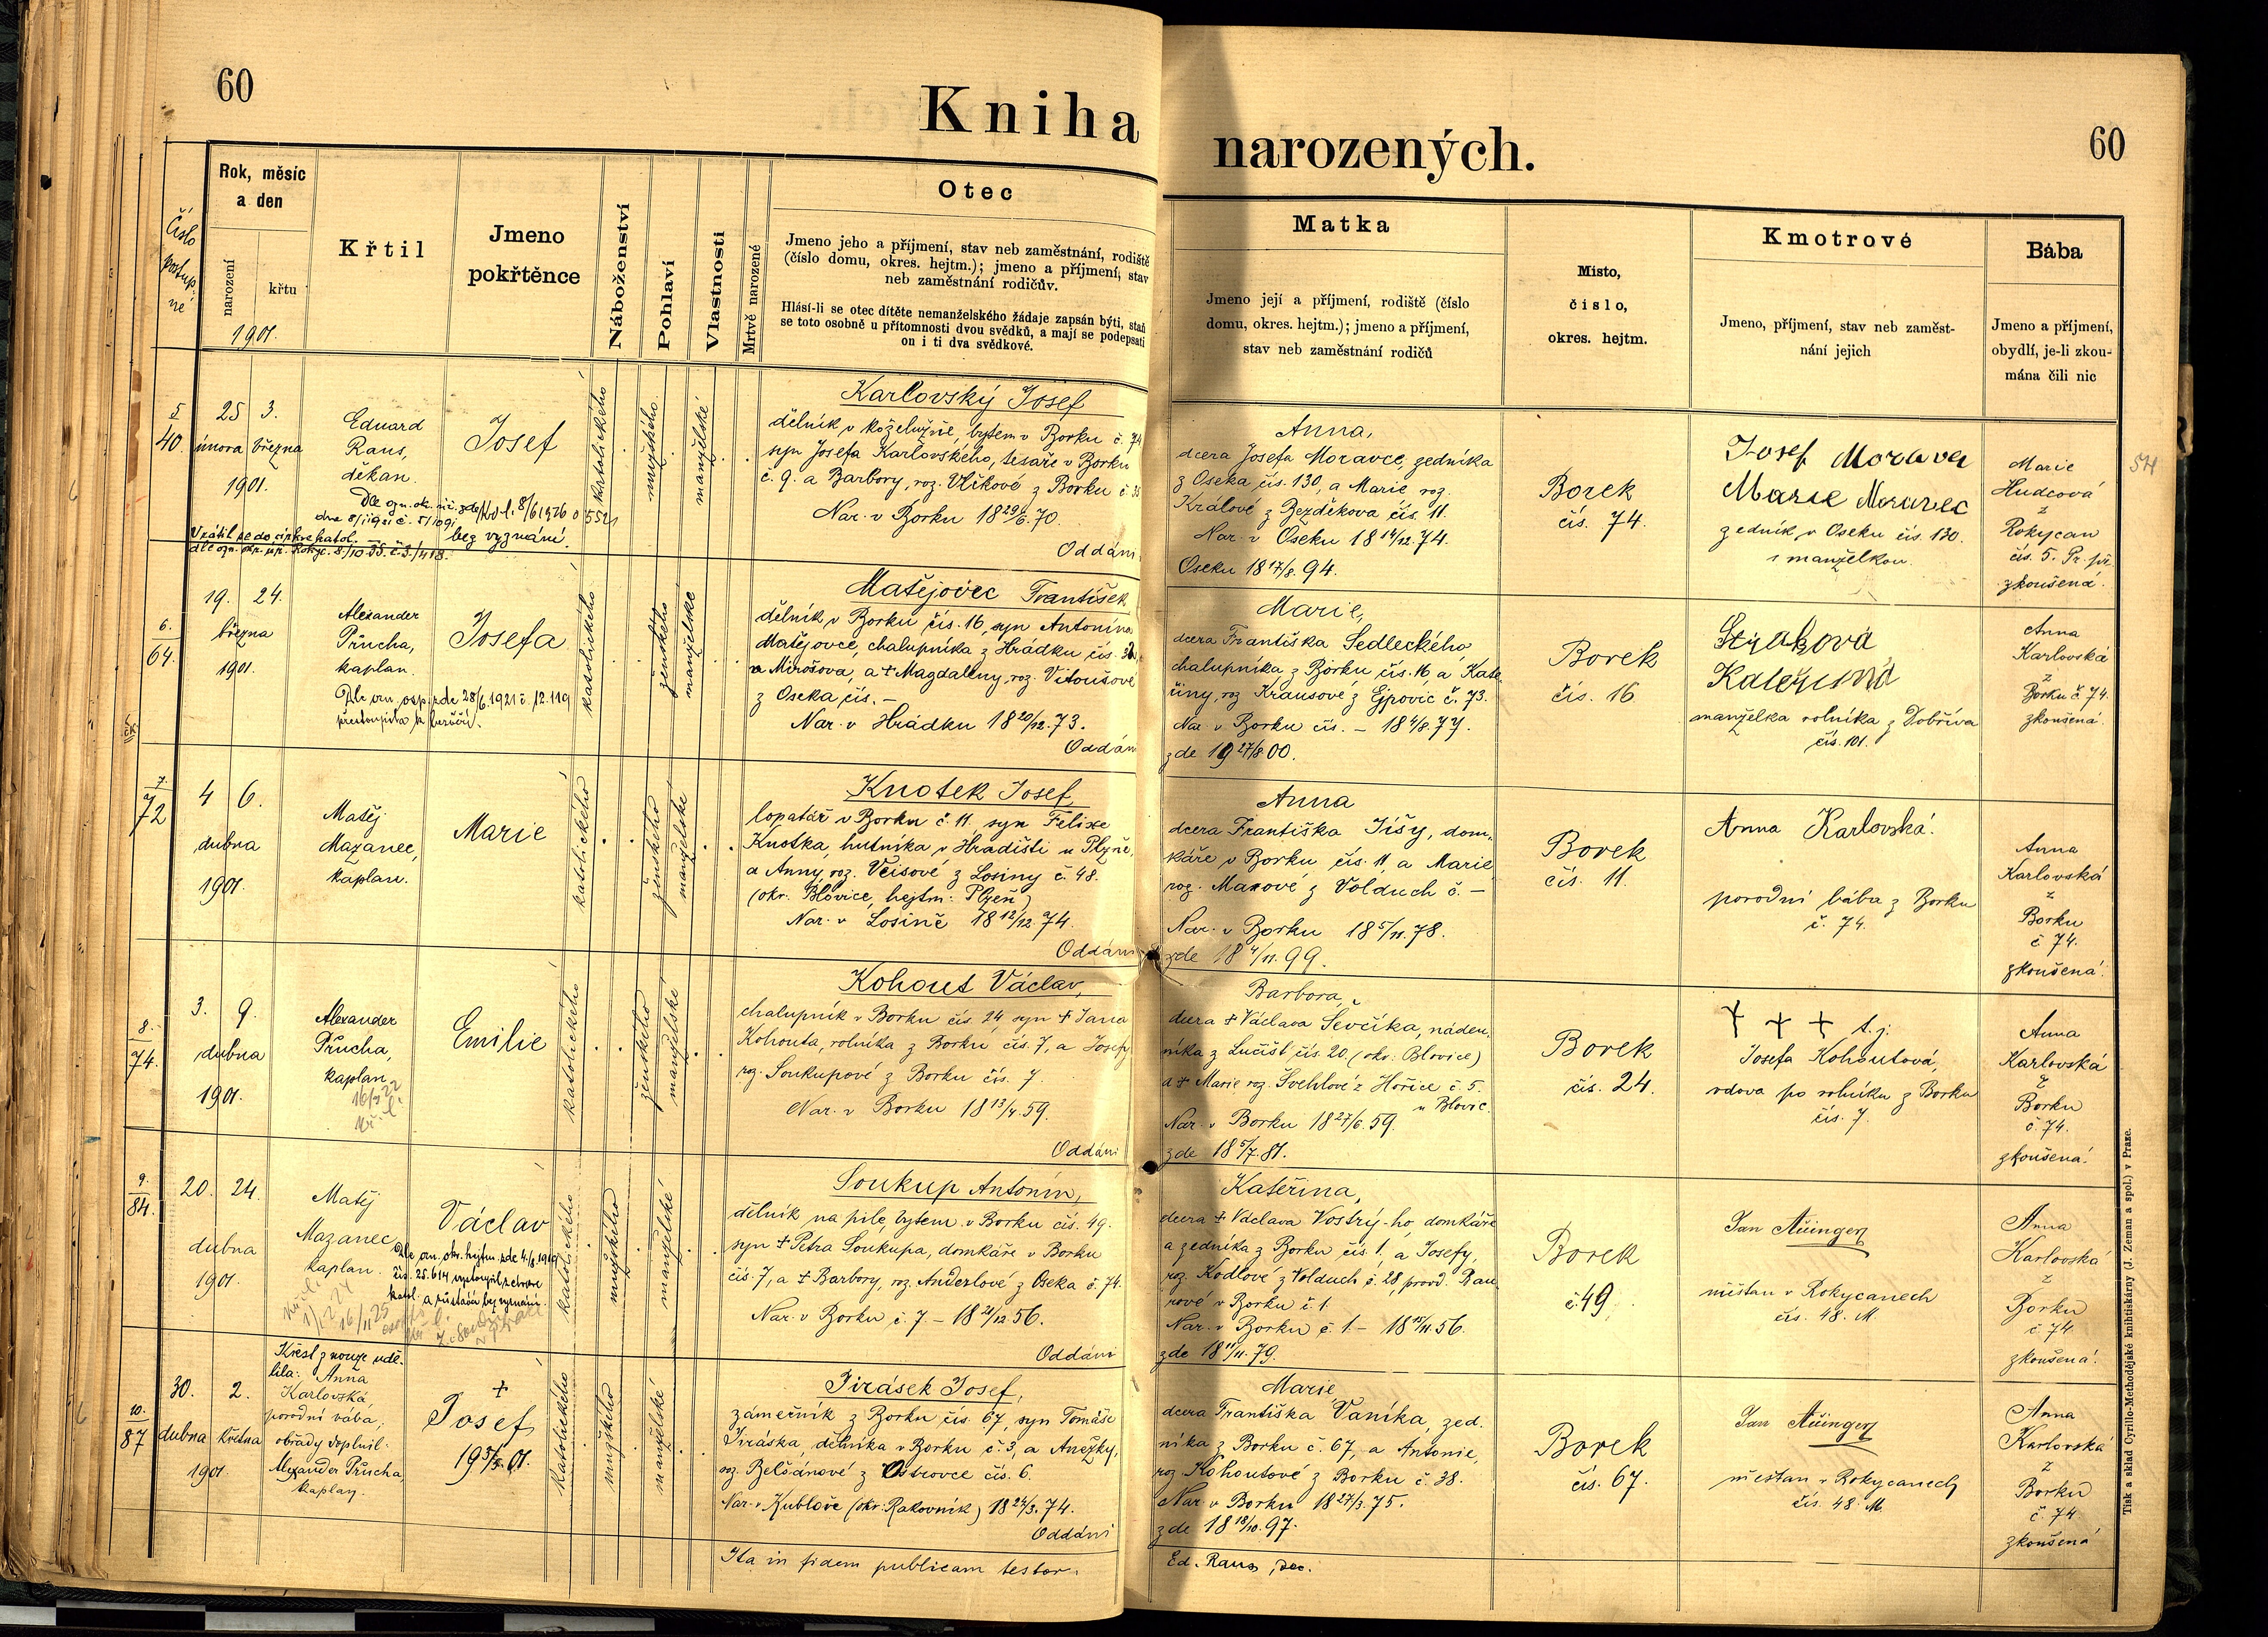 60
Kniha
narozených.
60
Číslo
postup-
né
Rok, měsíc
a den
narození
křtu
1901.
Křtil
Jmeno
pokřtěnce
Náboženství
Pohlaví
Vlastnosti
Mrtvě narozené
Otec
Jmeno jeho a příjmení, stav neb zaměstnání, rodiště
(číslo domu, okres. hejtm.); jmeno a příjmení, stav
neb zaměstnání rodičův.
Hlásí-li se otec dítěte nemanželského žádaje zapsán býti, staň
se toto osobně u přítomnosti dvou svědků, a mají se podepsati
on i ti dva svědkové.
Matka
Jmeno její a příjmení, rodiště (číslo
domu, okres. hejtm.); jmeno a příjmení,
stav neb zaměstnání rodičů
Místo,
číslo,
okres. hejtm.
Kmotrové
Jmeno, příjmení, stav neb zaměst-
nání jejich
Bába
Jmeno a příjmení,
obydlí, je-li zkou-
mána čili nic
5
40.
25 3.
února března
1901.
Eduard
Raus,
děkan.
Josef
katolického
mužského
manželské
Karlovský Josef
dělník v koželužně, bytem v Borku č. 74
syn Josefa Karlovského, tesaře v Borku
č. 9. a Barbory, roz. Vlčkové z Borku č. 35
Nar. v Borku 18 29/6. 70.
Oddáni
bez vyznání.
Vrátil se do církve katol.
Anna,
dcera Josefa Moravce, zedníka
z Oseka čís. 130, a Marie roz.
Králové z Bezděkova čís. 11.
Nar. v Oseku 18 14/12. 74.
Oseku 18 17/8. 94.
Borek
čís. 74.
Josef Moravec
Marie Moravec
zedník v Oseku čís. 130.
s manželkou.
Marie
Hudcová
z
Rokycan
čís. 5. Pr. př.
zkoušená.
54
6.
64.
19. 24.
března
1901.
Alexander
Průcha,
kaplan.
Josefa
katolického
ženského
manželské
Matějovec František
dělník v Borku čís. 16, syn Antonína
Matějovce, chalupníka z Hrádku čís.
u Mirošova, a + Magdaleny, roz. Vitoušové
z Oseka čís. –
Nar. v Hrádku 18 20/12. 73.
Oddáni
Marie,
dcera Františka Sedleckého
chalupníka z Borku čís. 16, a Kate-
řiny, roz. Krausové z Ejpovic č. 73.
Nar. v Borku čís. – 18 4/8. 77.
zde 19 27/8. 00.
Borek
čís. 16
Strakova
Kateřina
manželka rolníka z Dobříva
čís. 101.
Anna
Karlovská
z
Borku č. 74.
zkoušená.
7.
72
4 6.
dubna
1901.
Matěj
Mazanec,
kaplan.
Marie
katolického
ženského
manželské
Knotek Josef,
lopatář v Borku č. 11. syn Felixe
Knotka, hutníka v Hradišti u Plzně,
a Anny, roz. Vcisové z Losiny č. 48.
(okr. Blovice, hejtm. Plzeň)
Nar. v Losině 18 12/12. 74.
Oddáni
Anna
dcera Františka Jíšy, dom-
káře v Borku čís. 11, a Marie
roz. Maxové z Volduch č. –
Nar. v Borku 18 5/11. 78.
zde 18 4/11. 99.
Borek
čís. 11.
Anna Karlovská.
porodní bába z Borku
č. 74.
Anna
Karlovská
z
Borku
č 74.
zkoušená.
8.
74.
3. 9.
dubna
1901.
Alexander
Průcha,
kaplan
Emilie
katolického
ženského
manželské
Kohout Václav,
chalupník v Borku čís. 24, syn + Jana
Kohouta, rolníka z Borku čís. 7, a Josefy
roz. Soukupové z Borku čís. 7
Nar. v Borku 18 13/4. 59.
Oddáni
Barbora,
dcera + Václava Ševčíka, náden-
níka z Lučišť čís. 20. (okr. Blovice)
a + Marie roz. Švehlové z Hořice č 5.
u Blovic.
Nar. v Borku 18 27/6. 59.
zde 18 5/7. 81.
Borek
čís. 24.
+ + + t. j.
Josefa Kohoutová,
vdova po rolníku z Borku
čís. 7.
Anna
Karlovská
z
Borku
č. 74.
zkoušená.
9.
84.
20. 24.
dubna
1901.
Matěj
Mazanec
kaplan.
Václav
katolického
mužského
manželské
Soukup Antonín,
dělník na pile, bytem v Borku čís. 49.
syn + Petra Soukupa, domkáře v Borku
čís. 7, a + Barbory, roz. Anderlové z Oseka č. 74.
Nar. v Borku č. 7. – 18 21/12. 56.
Oddáni
Kateřina,
dcera + Václava Vostrý-ho, domkáře
a zedníka z Borku čís. 1. a Josefy,
roz. Kodlové z Volduch č. 28, provd. Rau-
rové v Borku č. 1.
Nar. v Borku č. 1. – 18 15/11. 56.
zde 18 11/11. 79.
Borek
č. 49.
Jan Aüinger
měšťan v Rokycanech
čís. 48. M.
Anna
Karlovská
z
Borku
č. 74
zkoušená.
10.
87
30. 2.
dubna května
1901.
Křest z nouze udě-
lila: Anna
Karlovská,
porodní bába;
obřady doplnil
Alexander Průcha,
kaplan.
+
Josef
katolického
mužského
manželské
Jirásek Josef,
zámečník z Borku čís. 67, syn Tomáše
Jiráska, dělníka v Borku č. 3, a Anežky,
roz. Belšánové z Ostrovce čís. 6.
Nar. v Kublově (okr. Rakovník) 18 24/3. 74.
Oddáni
Marie
dcera Františka Vaníka, zed-
níka z Borku č. 67, a Antonie,
roz. Kohoutové z Borku č. 38.
Nar. v Borku 18 27/3. 75.
zde 18 18/10. 97.
Borek
čís. 67.
Jan Aüinger
měšťan v Rokycanech
čís. 48. M.
Anna
Karlovská
z
Borku
č. 74
zkoušená
Ita in fidem publicam testor.
Ed. Raus, dec.
Tisk a sklad Cyrillo-Methodějské knihtiskárny (J. Zeman a spol.) v Praze.